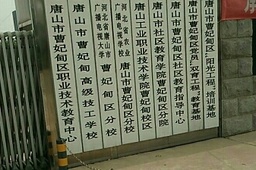 唐山市曹妃甸区“阳光工程”培训基地
唐山市曹妃甸区党员“双育工程”教育基地
唐山市曹妃甸区社区教育指导中心
唐山市社区教育学院曹妃甸区分院
唐山工业职业技术学院曹妃甸校区
河北省农业
广播电视学校
唐山市曹妃甸区分校
河北省唐山市
广播电视大学
曹妃甸区分校
唐山市曹妃甸高级技工学校
唐山市曹妃甸区职业技术教育中心